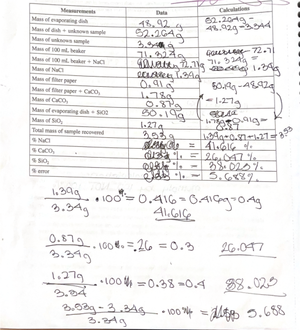 Measurements Data Calculations
Mass of evaporating dish 48.92 g 52.264g -
Mass of dish + unknown sample 52.264g 48.92g = 3.344
Mass of unknown sample 3.34g
Mass of 100 mL beaker 71.324g 72.71
Mass of 100 mL beaker + NaCl 72.71g 71.324g
Mass of NaCl 1.39g = 1.39g
Mass of filter paper 0.91g
Mass of filter paper + CaCO₃ 1.78g 50.19g - 48.92g
Mass of CaCO₃ 0.87g = 1.27g
Mass of evaporating dish + SiO2 50.19g
Mass of SiO₂ 1.27g 0.91g =
0.87
Total mass of sample recovered 3.53g 1.39g + 0.87 + 1.27 = 3.53
% NaCl % = 41.616 %
% CaCO₃ % = 26.047 %
% SiO₂ % = 38.023 %
% error % = 5.688%
1.39g
3.34g
· 100% = 0.416 = 0.416g = 0.4g
41.616
0.87g
3.34g
· 100% = .26 = 0.3 26.047
1.27g
3.34
· 100% = 0.38 = 0.4 38.023
3.53g - 3.34g
3.34g
· 100% = 5.688